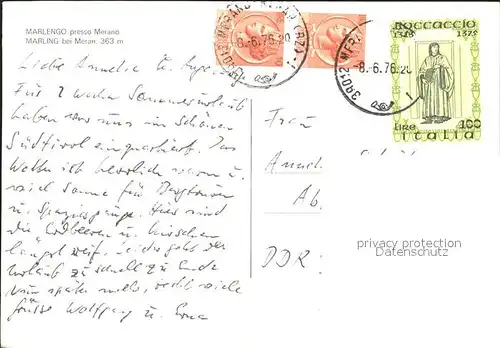 MARLENGO presso Merano
MARLING bei Meran, 363 m
Boccaccio
1313 1375
8.-6.76.20
39012 MERANO
8.-6.76.20
Lire 100
Italia
Liebe Annelie u.
Für 1 Woche Sommerurlaub
haben wir uns im schönen
Südtirol einquartiert. Das
Wetter ist herrlich warm u.
viel Sonne für Bergtouren
u. Spaziergänge. Hier sind
die Erdbeeren u. Kirschen
längst reif. Leider geht der
Urlaub zu schnell zu Ende
viele
Grüsse Wolfgang u. Erna
Frau
Ab.
DDR:
privacy protection
Datenschutz